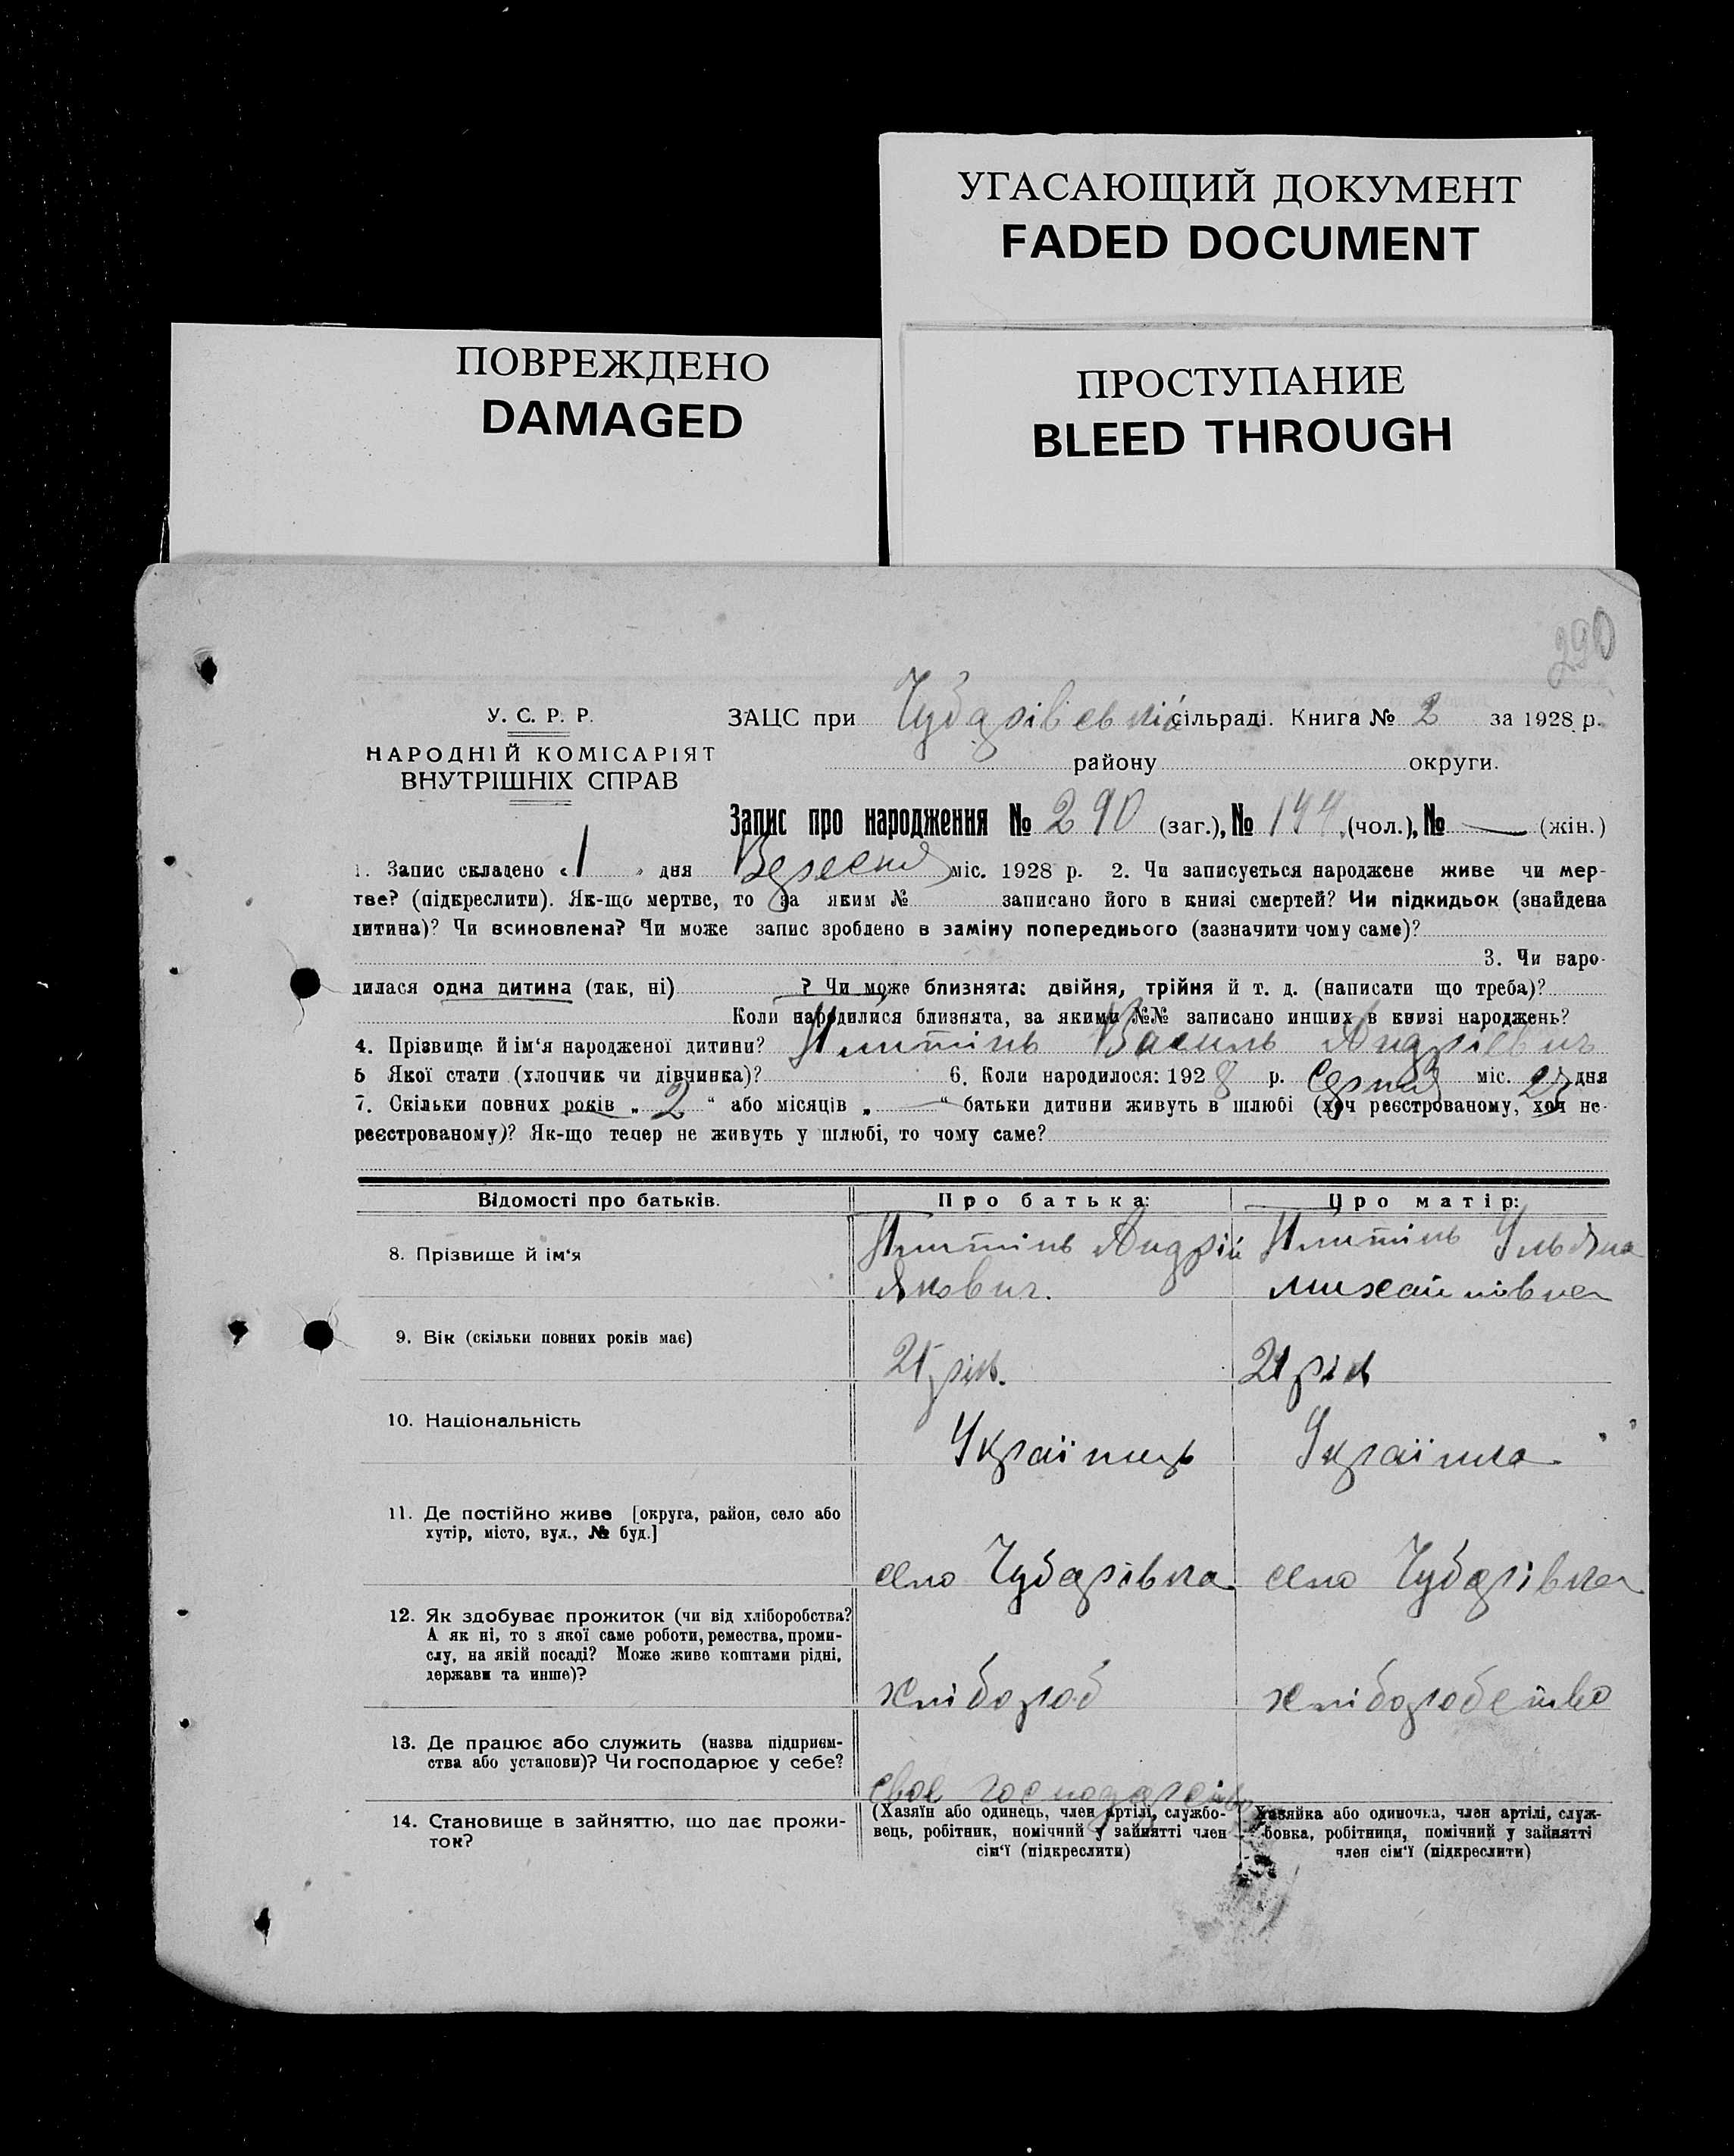 УГАСАЮЩИЙ ДОКУМЕНТ
FADED DOCUMENT
ПОВРЕЖДЕНО
DAMAGED
ПРОСТУПАНИЕ
BLEED THROUGH
290
У. С. Р. Р.
НАРОДНІЙ КОМІСАРІЯТ
ВНУТРІШНІХ СПРАВ
ЗАЦС при Чубарівській сільраді. Книга № 2 за 1928 р.
району округи.
Запис про народження № 290 (заг.), № 144 (чол.), № — (жін.)
1. Запис складено « 1 » дня Вересня міс. 1928 р. 2. Чи записується народжене живе чи мер-
тве? (підкреслити). Як-що мертве, то за яким № записано його в книзі смертей? Чи підкидьок (знайдена
дитина)? Чи всиновлена? Чи може запис зроблено в заміну попереднього (зазначити чому саме)?
3. Чи наро-
дилася одна дитина (так, ні) ? Чи може близнята: двійня, трійня й т. д. (написати що треба)?
Коли народилися близнята, за якими №№ записано инших в книзі народжень?
4. Прізвище й ім'я народженої дитини? Василь Андрієвич
5 Якої стати (хлопчик чи дівчинка)? 6. Коли народилося: 1928 р. Серпня міс. 27 дня
7. Скільки повних років „ 2 " або місяців „ — " батьки дитини живуть в шлюбі (хоч реєстрованому, хоч не-
реєстрованому)? Як-що тепер не живуть у шлюбі, то чому саме?
Відомості про батьків.
Про батька:
Про матір:
8. Прізвище й ім'я
Андрій
Якович.
Ульяна
Михайлівна
9. Вік (скільки повних років має)
21 рік.
21 рік
10. Національність
Українець
Українка
11. Де постійно живе [округа, район, село або
хутір, місто, вул., № буд.]
село Чубарівка
село Чубарівка
12. Як здобуває прожиток (чи від хліборобства?
А як ні, то з якої саме роботи, ремества, проми-
слу, на якій посаді? Може живе коштами рідні,
держави та инше)?
хлібороб
хліборобство
13. Де працює або служить (назва підприєм-
ства або установи)? Чи господарює у себе?
своє господарство
14. Становище в зайняттю, що дає прожи-
ток?
(Хазяїн або одинець, член артілі, службо-
вець, робітник, помічний у зайнятті член
сім'ї (підкреслити)
Хазяйка або одиночка, член артілі, служ-
бовка, робітниця, помічний у зайнятті
член сім'ї (підкреслити)